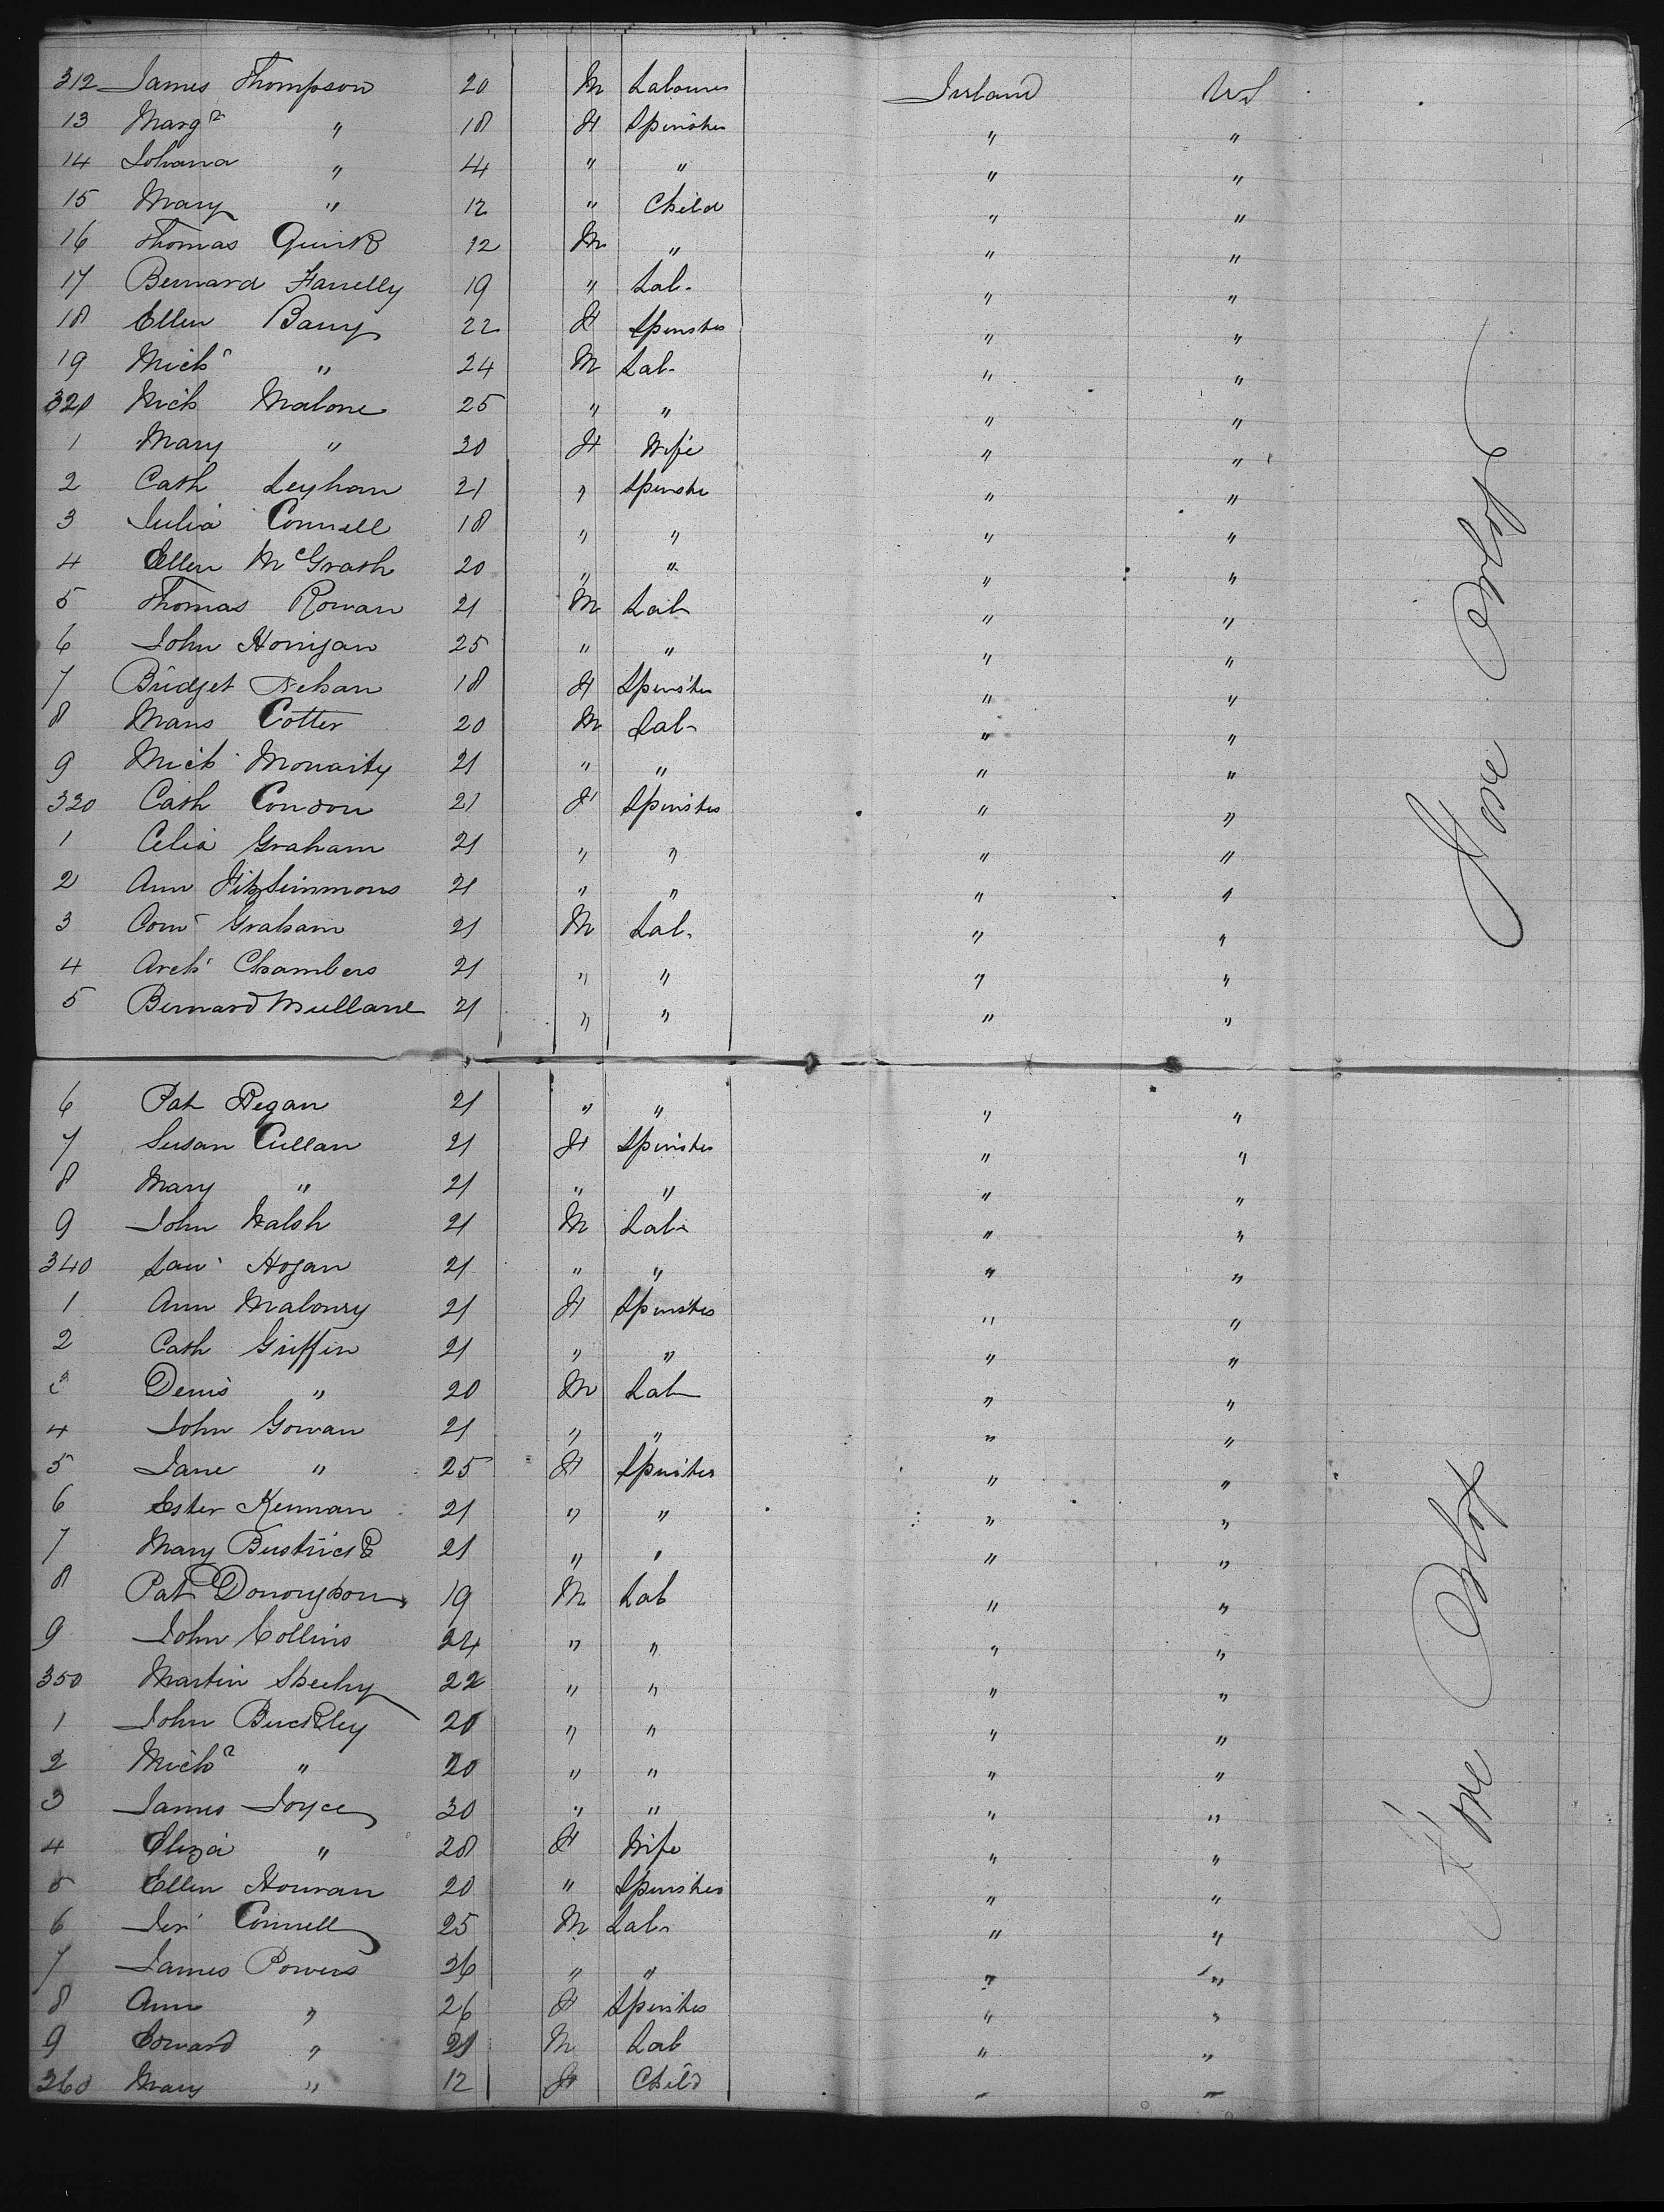 312 James Thompson 20 M Labourer Ireland US
13 Marg t " 18 F Spinster " "
14 Johana " 4 " " " "
15 Mary " 12 " Child " "
16 Thomas Quirk 12 M " " "
17 Bernard Farrelly 19 " Lab. " "
18 Ellen Barry 22 F Spinster " "
19 Mich l " 24 M Lab. " "
320 Mich Malone 25 " " " "
1 Mary " 30 F Wife " "
2 Cath Leyhan 21 " Spinster " "
3 Julia Connell 18 " " " "
4 Ellen McGrath 20 " " " "
5 Thomas Rowan 21 M Lab " "
6 John Horrigan 25 " " " "
7 Bridget Nehan 18 F Spinster " "
8 Mans Cotter 20 M Lab " "
9 Mich Moriarity 21 " " " "
330 Cath Condon 21 F Spinster " "
1 Celia Graham 21 " " " "
2 Ann Fitzsimmons 21 " " " "
3 Corn Graham 21 M Lab. " "
4 Arch Chambers 21 " " " "
5 Bernard Mullane 21 " " " "
Fore Orlop
6 Pat Regan 21 " " " "
7 Susan Cullan 21 F Spinster " "
8 Mary " 21 " " " "
9 John Walsh 21 M Lab " "
340 Law Hogan 21 " " " "
1 Ann Maloney 21 F Spinster " "
2 Cath Griffin 21 " " " "
3 Denis " 20 M Lab " "
4 John Gowan 21 " " " "
5 Jane " 25 F Spinster " "
6 Ester Keenan 21 " " " "
7 Mary 21 " " " "
8 Pat 19 M Lab " "
9 John Collins 24 " " " "
350 Martin Sheehy 22 " " " "
1 John Buckley 20 " " " "
2 Mich l " 20 " " " "
3 James Joyce 30 " " " "
4 Eliza " 28 F Wife " "
5 Ellen Houran 20 " Spinster " "
6 Jer Connell 25 M Lab " "
7 James Powers 26 " " " "
8 Ann " 26 F Spinster " "
9 Edward " 21 M Lab " "
360 Mary " 12 F Child " "
Fore Orlop